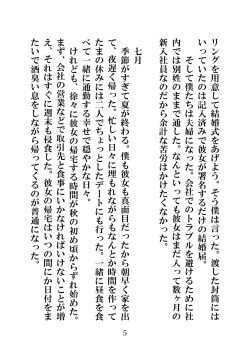 リングを用意して結婚式をあげよう。そう僕は言った。渡した封筒には
いっていたのは記入済みで彼女が署名するだけの結婚届。
そして僕たちは夫婦になった。会社でのトラブルを避けるために社
内では別姓のままで通した。なんといっても彼女はまだ入って数ヶ月の
新入社員なのだから余計な苦労はかけたくなかった。
七月
季節がすぎて夏が終わる。僕も彼女も真面目だったから朝早く家を出
て、夜遅く帰った。忙しい日々に埋もれながらもなんとか時間を作って
たまの休みには二人でちょっとしたデートにも行った。一緒に昼食を食
べて一緒に通勤する幸せで穏やかな日々。
けれども、徐々に彼女の帰宅時間が秋の初め頃からずれ始めた。
まず、会社の営業などで取引先と食事にいかなければいけないことが増
え、それはすぐに週末も侵食した。彼女の帰宅はいつの間にか日付をま
たいで酒臭い息をしながら帰ってくるのが普通になった。
5